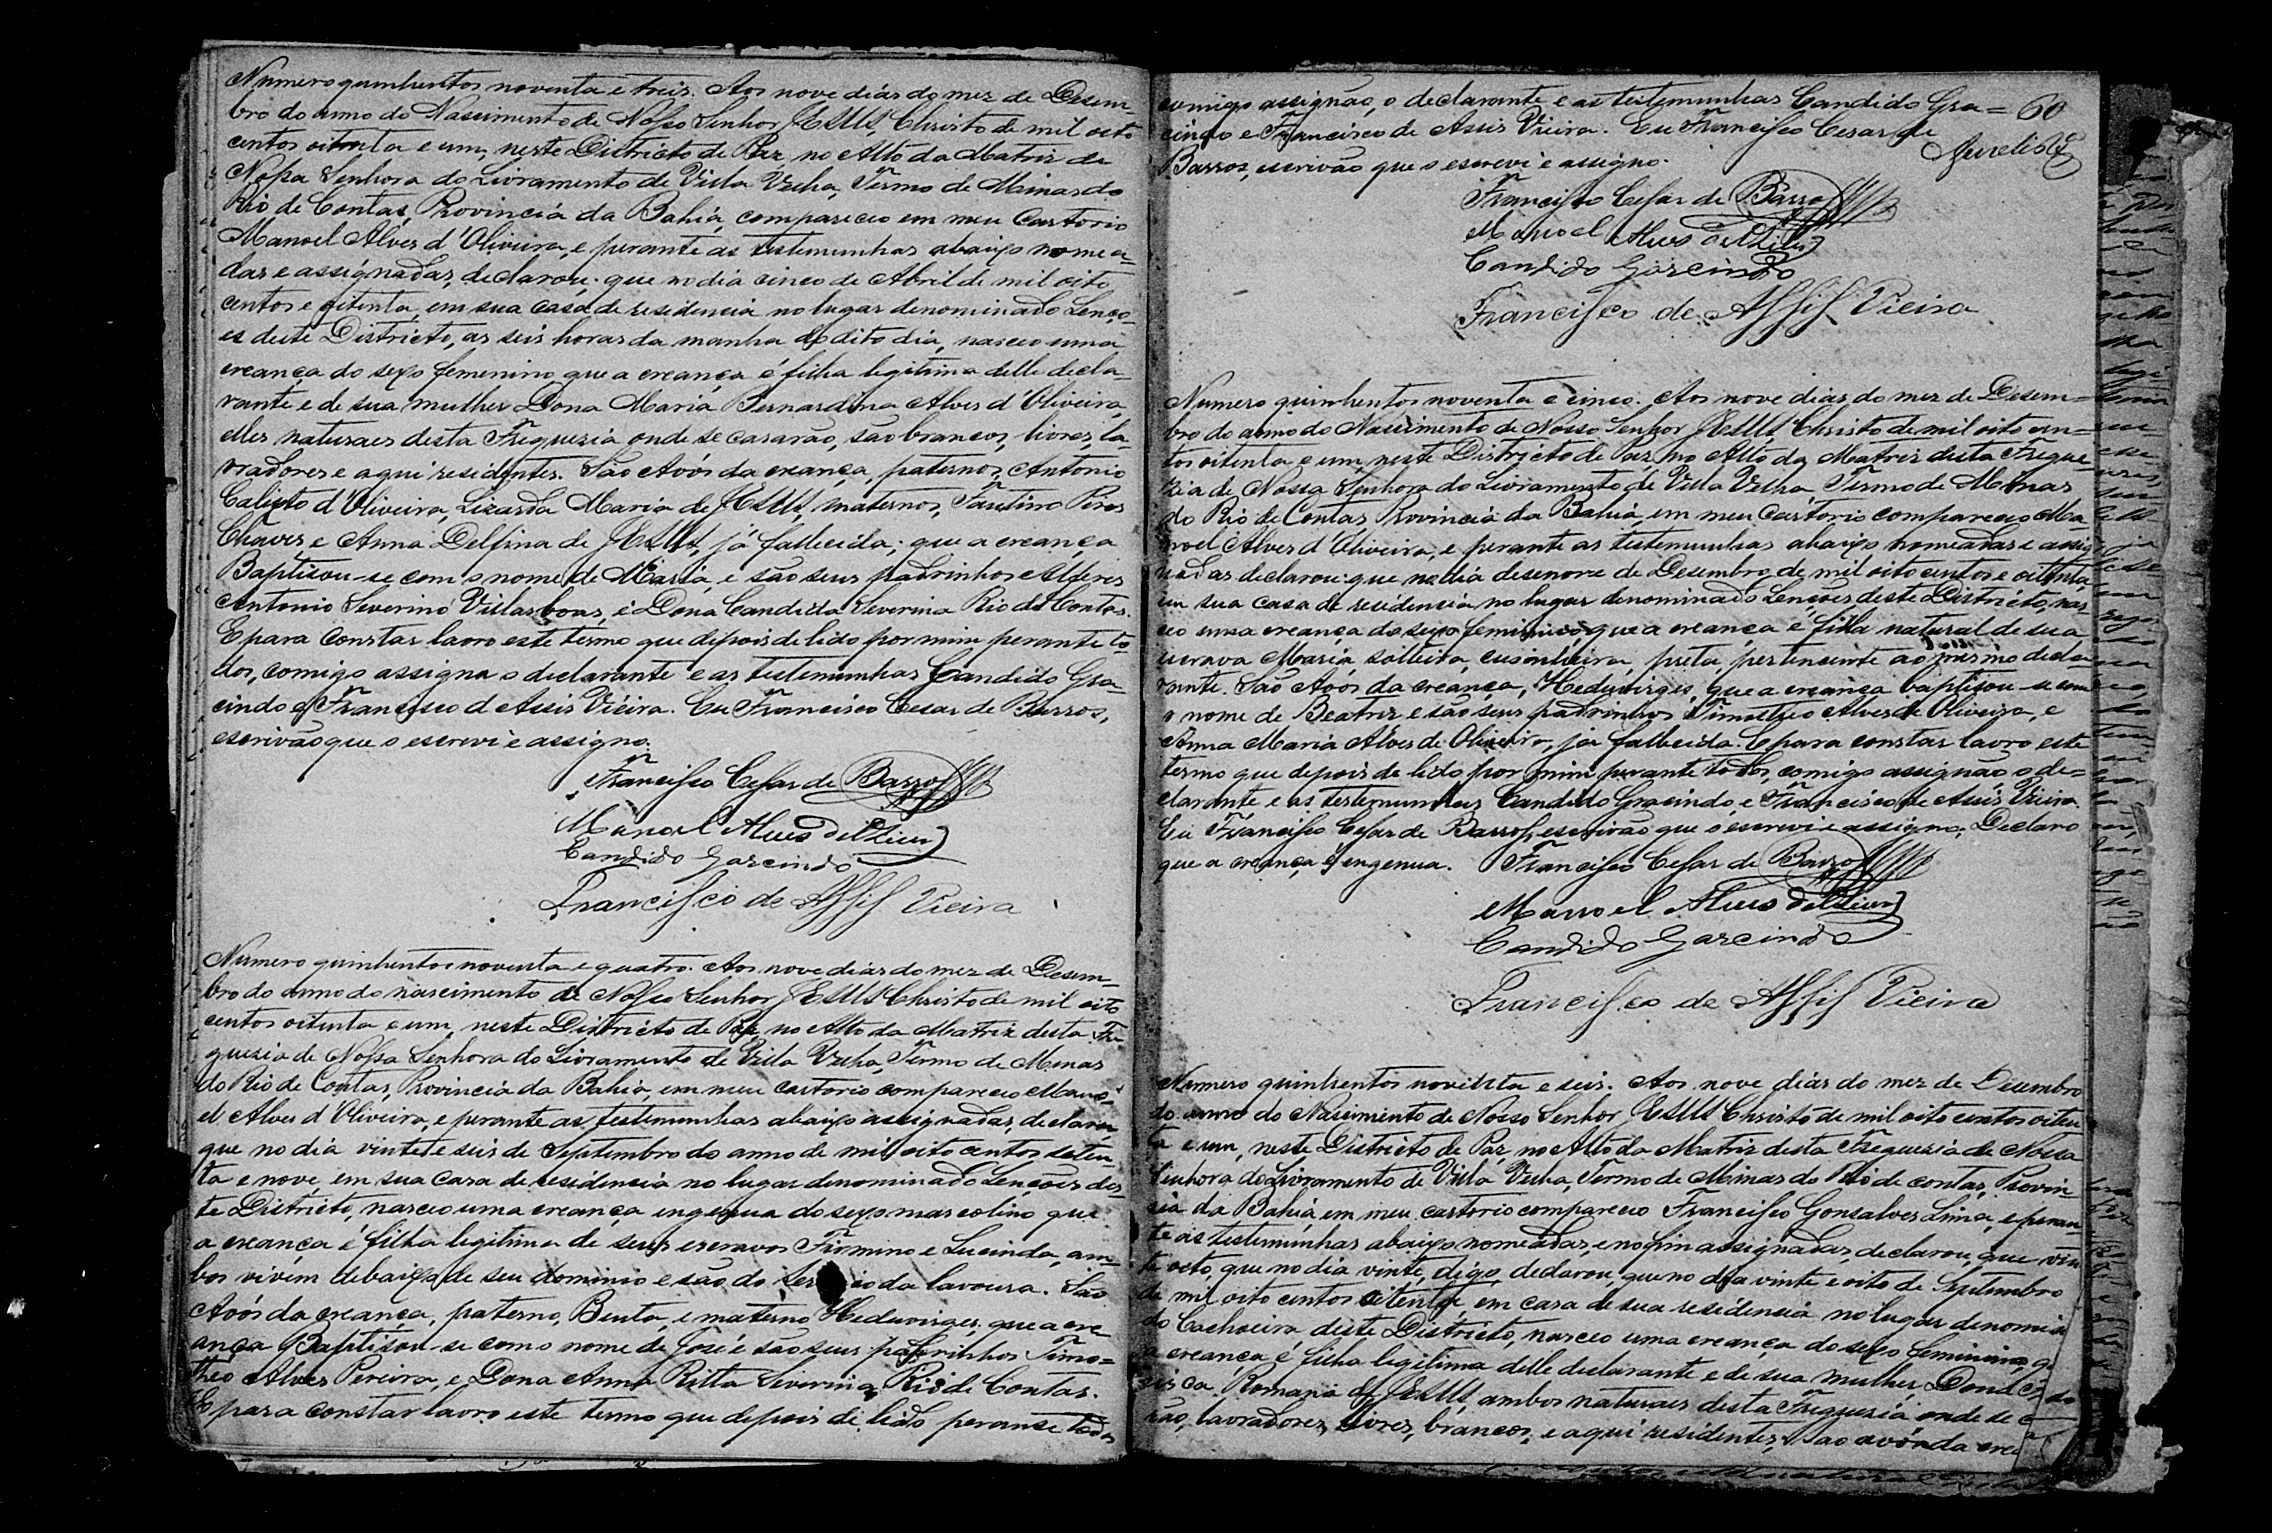 Numero quinhentos noventa e treis. Aos nove dias do mez de Desem-
bro do anno do Nascimento de Nosso Senhor JESUS Christo de mil oito
centos oitenta e um, neste Districto de Paz no Alto da Matriz de
Nossa Senhora do Livramento de Villa Velha, Termo de Minas do
Rio de Contas, Provincia da Bahia, compareceo em meu Cartorio
Manoel Alves d'Oliveira, e perante as testemunhas abaixo nomea-
das e assignadas, declarou: que no dia cinco de Abril de mil oito
centos e oitenta, em sua casa de residencia no lugar denominado Lenço-
es deste Districto, as seis horas da manha do dito dia, nasceo uma
creança do sexo femenino que a creança é filha legitima delle decla-
rante e de sua mulher Dona Maria Bernardina Alves d'Oliveira,
elles naturaes desta Freguezia onde se casarão, são brancos, livres, la-
vradores e aqui residentes. São Avós da creança, paternos, Antonio
Calixto d'Oliveira, Lizarda Maria de JESUS, maternos, Faustino Pires
Chaves e Anna Delfina de JESUS, já fallecida; que a creança
Baptisou-se com o nome de Maria, e são seus padrinhos Alferes
Antonio Severino Villasboas, e Dona Candida Severina Rio de Contas.
E para constar lavro este termo que depois de lido por mim perante to-
dos, comigo assigna o declarante e as testemunhas Candido Gra-
cindo e Francisco d'Assis Vieira. Eu Francisco Cesar de Barros,
escrivão que o escrevi e assigno.
Francisco Cesar de Barros
Manoel Alves d'Oliveira
Candido Garcindo
Francisco de Assis Vieira
Numero quinhentos noventa e quatro. Aos nove dias do mez de Desem-
bro do anno do nascimento de Nosso Senhor JESUS Christo de mil oito
centos oitenta e um, neste Districto de Paz, no Alto da Matriz desta Fre
guezia de Nossa Senhora do Livramento de Villa Velha, Termo de Minas
do Rio de Contas, Provincia da Bahia, em meu cartorio compareceo Mano-
el Alves d'Oliveira, e perante as testemunhas abaixo assignadas, declarou
que no dia vinte e seis de Septembro do anno de mil oito centos seten-
ta e nove, em sua casa de residencia no lugar denominado Lençoes des-
te Districto, nasceo uma creança ingenua do sexo mascolino que
a creança é filha legitima de seus escravos Firmino e Lucinda, am-
bos vivem debaixo de seu dominio e são do da lavoura. São
Avós da creança, paterno, Bento, e materno Heduvirges, que a cre
ança Baptisou-se com o nome de José e são seus padrinhos Timo=
theo Alves Pereira, e Dona Anna Ritta Severina Rio de Contas.
E para constar lavro este termo que depois de lido perante todos
comigo assignão, o declarante e as testemunhas Candido Gra= 60
cindo e Francisco de Assis Vieira. Eu Francisco Cesar de
Aurelio
Barros, escrivão que o escrevi e assigno.
Francisco Cesar de Barros
Manoel Alves d'Oliveira
Candido Garcindo
Francisco de Assis Vieira
Numero quinhentos noventa e cinco. Aos nove dias do mez de Desem=
bro do anno do Nascimento de Nosso Senhor JESUS Christo de mil oito cen=
tos oitenta e um, neste Districto de Paz, no Alto da Matriz desta Fregue
zia de Nossa Senhora do Livramento de Villa Velha, Termo de Minas
do Rio de Contas, Provincia da Bahia, em meu Cartorio compareceo Ma
noel Alves d'Oliveira, e perante as testemunhas abaixo nomeadas e assig
nadas declarou: que no dia desenove de Desembro de mil oito centos e oitenta,
em sua casa de residencia no lugar denominado Lençoes deste Districto, nas
ceo uma creança do sexo feminino que a creança é filha natural de sua
escrava Maria, solteira, cusinheira, preta, pertencente ao mesmo decla
rante. São Avós da creança, Heduvirges, que a creança baptisou-se com
o nome de Beatriz e são seus padrinhos Timotheo Alves de Oliveira, e
Anna Maria Alves de Oliveira, já fallecida. E para constar lavro este
termo que depois de lido por mim perante todos, comigo assignão o de=
clarante e as testemunhas Candido Gracindo e Francisco de Assis Vieira.
Eu Francisco Cesar de Barros, escrivão que o escrevi e assigno. Declaro
que a creança é ingenua. Francisco Cesar de Barros
Manoel Alves d'Oliveira
Candido Garcindo
Francisco de Assis Vieira
Numero quinhentos noventa e seis. Aos nove dias do mez de Desembro
do anno do Nascimento de Nosso Senhor JESUS Christo de mil oito centos oiten
ta e um, neste Districto de Paz, no Alto da Matriz desta Freguezia de Nossa
Senhora do Livramento de Villa Velha, Termo de Minas do Rio de contas, Provin-
cia da Bahia, em meu cartorio compareceo Francisco Gonsalves Lima, e peran
te as testemunhas abaixo nomeadas, e no fim assignadas, declarou, que vin
te oito, que no dia vinte, digo, declarou, que no dia vinte e oito de Septembro
de mil oito centos oitenta em casa de sua residencia no lugar denomina
do Cachoeira deste Districto, nasceo uma creança do sexo feminino, q
a creança é filha legitima delle declarante e de sua mulher, Dona
Romana de JESUS, ambos naturaes desta Freguezia onde se
rão, lavradores, livres, brancos, e aqui residentes, são avós da cre